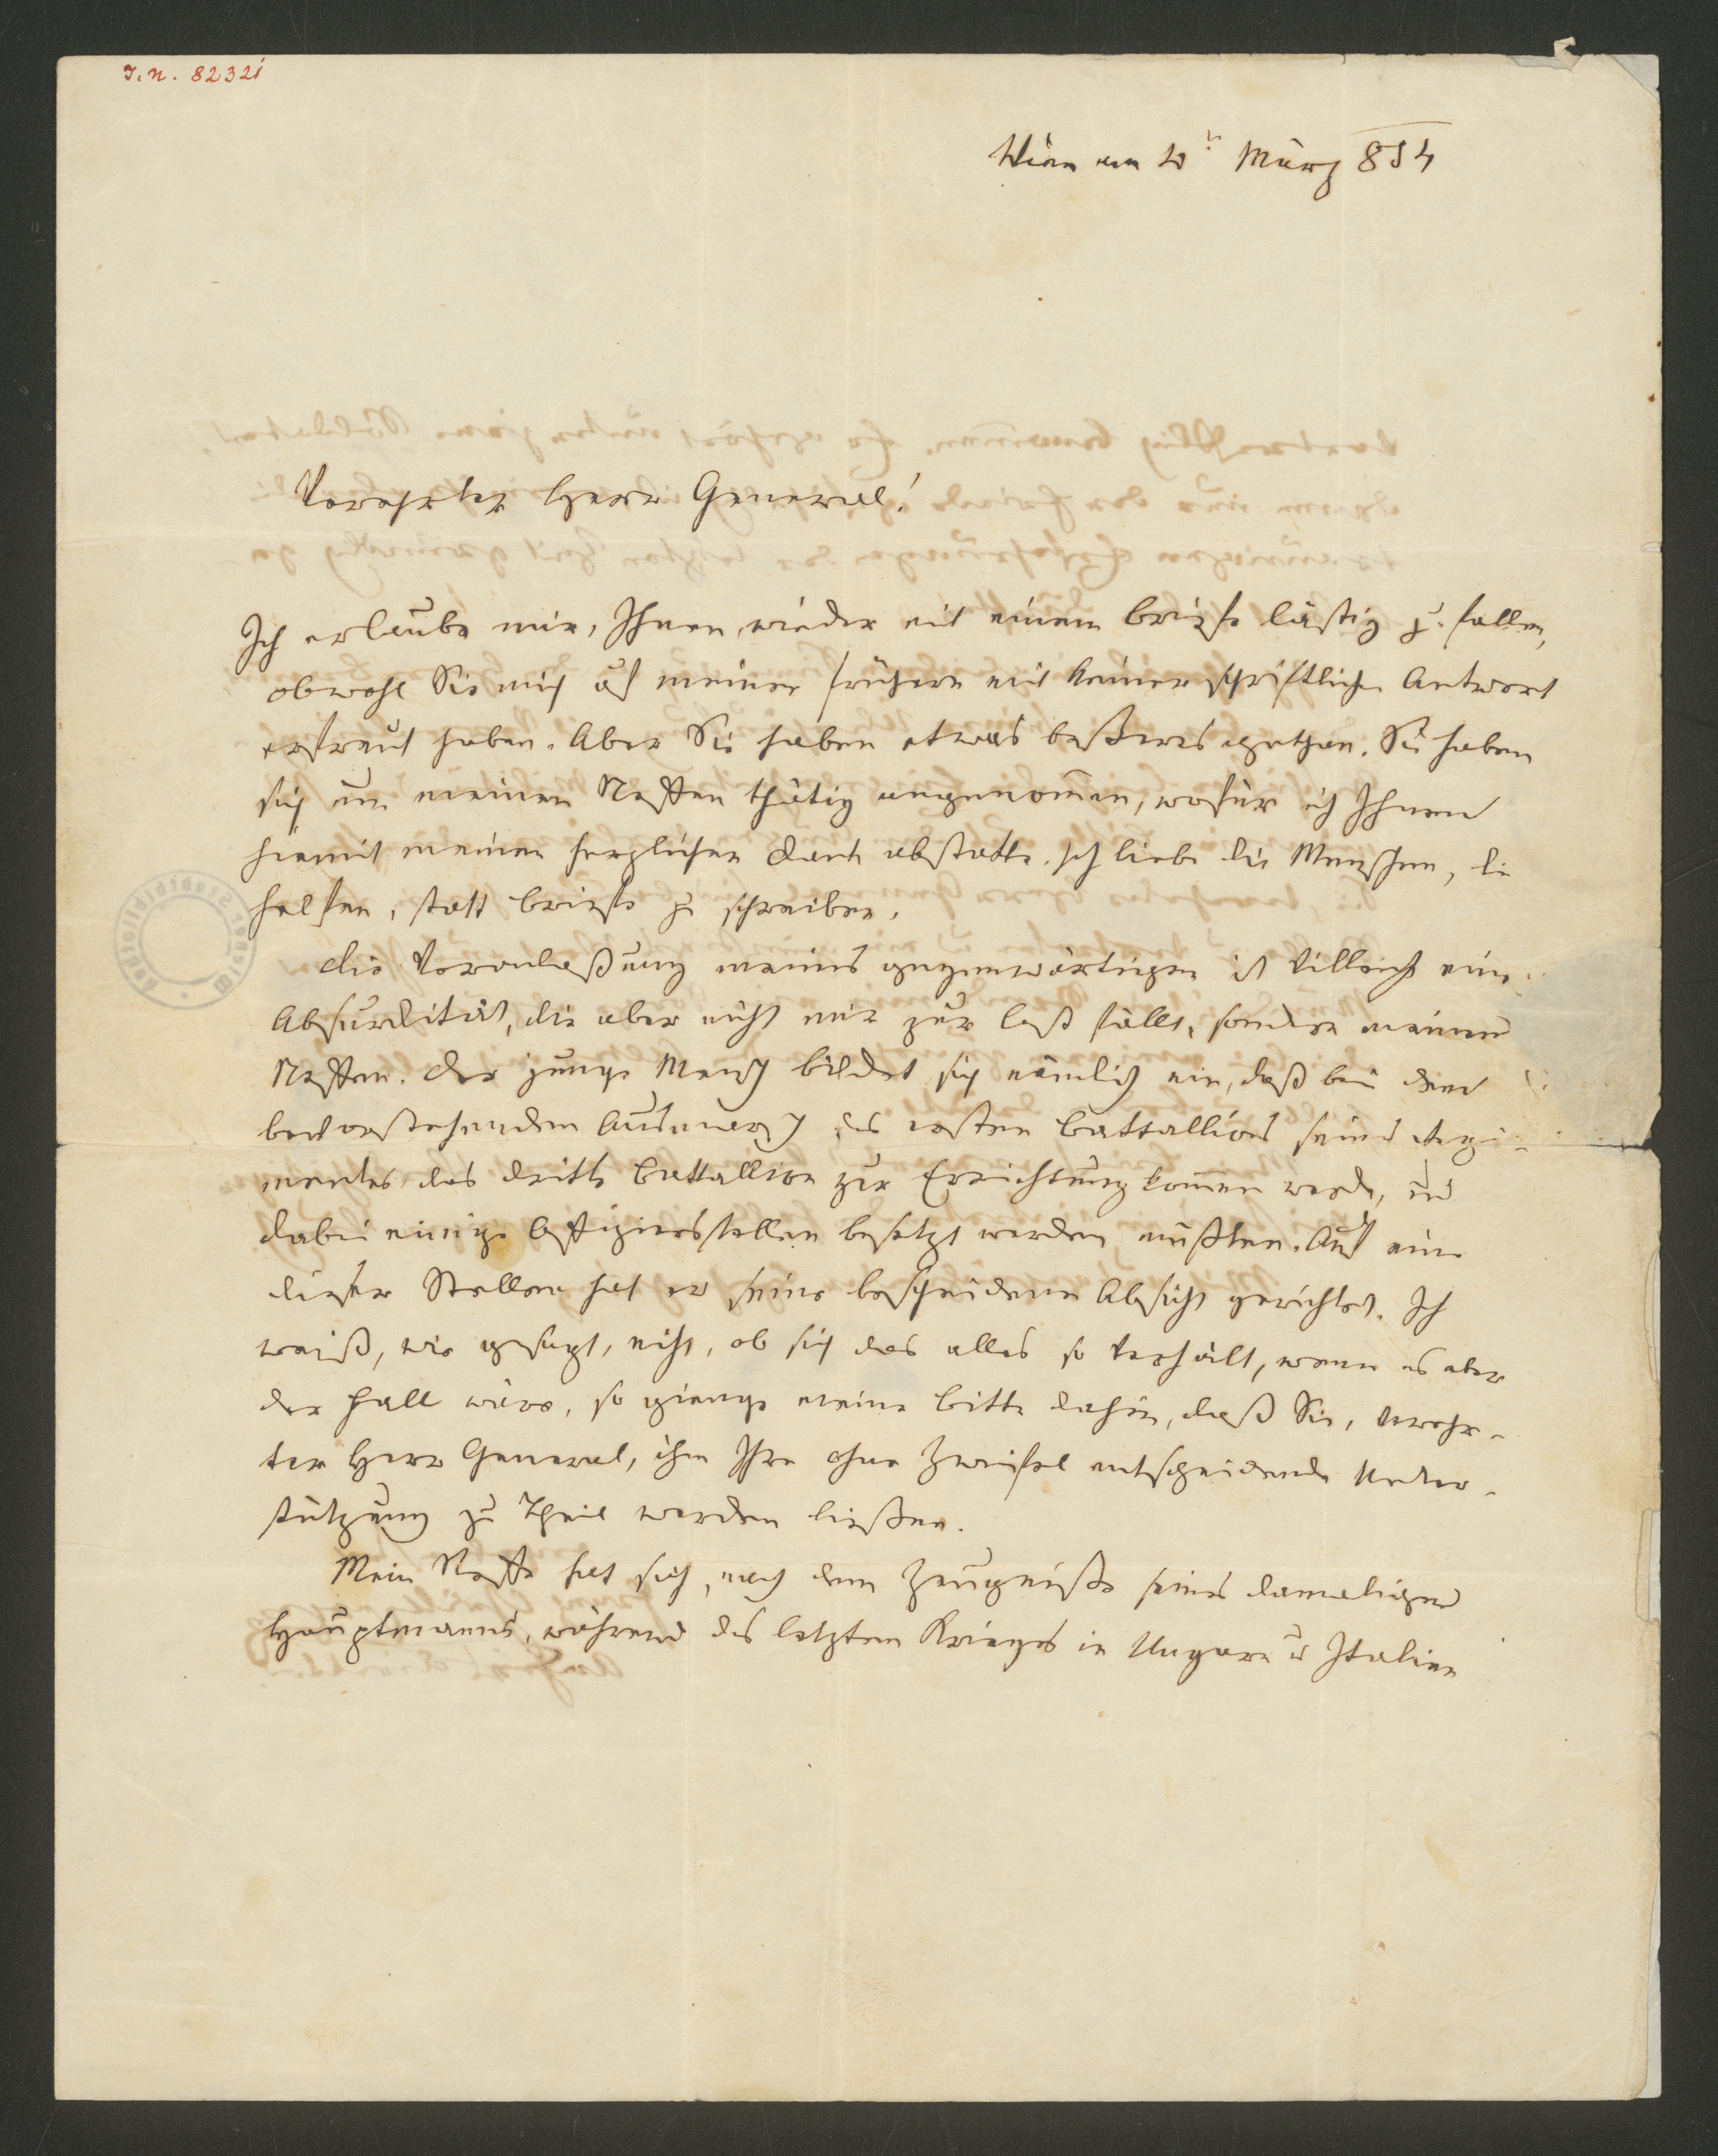 I. N. 82321
Wien am März 854
Verehrter Herr General!
Ich erlaube mir, Ihnen wieder mit einem Briefe lästig z. fallen,
obwohl Sie mich auf meinen frühern mit keiner schriftlichen Antwort
erfreut haben. Aber Sie haben etwas beßeres gethan. Sie haben
sich um meinen Neffen thätig angenom̄en, wofür ich Ihnen
hiemit meinen herzlichen Dank abstatte. Ich liebe die Menschen, die
helfen, statt Briefe zu schreiben.
Die Veranlaßung meines gegenwärtigen ist villeicht eine
Absurdität, die aber nicht mir zur Last fällt, sondern meinem
Neffen. Der junge Mensch bildet sich nämlich ein, daß bei dem
bevorstehenden Ausmarsch des ersten Battallions seines Regi-
mentes das dritte Battallion zur Errichtung kom̄en werde, und
dabei einige Offiziersstellen besetzt werden müßten. Auf eine
dieser Stellen hat er seine bescheidene Absicht gerichtet. Ich
weiß, wie gesagt, nicht, ob sich das alles so verhält, wenn es aber
der Fall wäre, so gienge meine Bitte dahin, daß Sie, verehr-
ter Herr General, ihm Ihre ohne Zweifel entscheidende Unter-
stützung zu Theil werden ließen.
Mein Neffe hat sich, nach dem Zeugniße seines damaligen
Hauptmanns, während des letzten Krieges in Ungarn u Italien